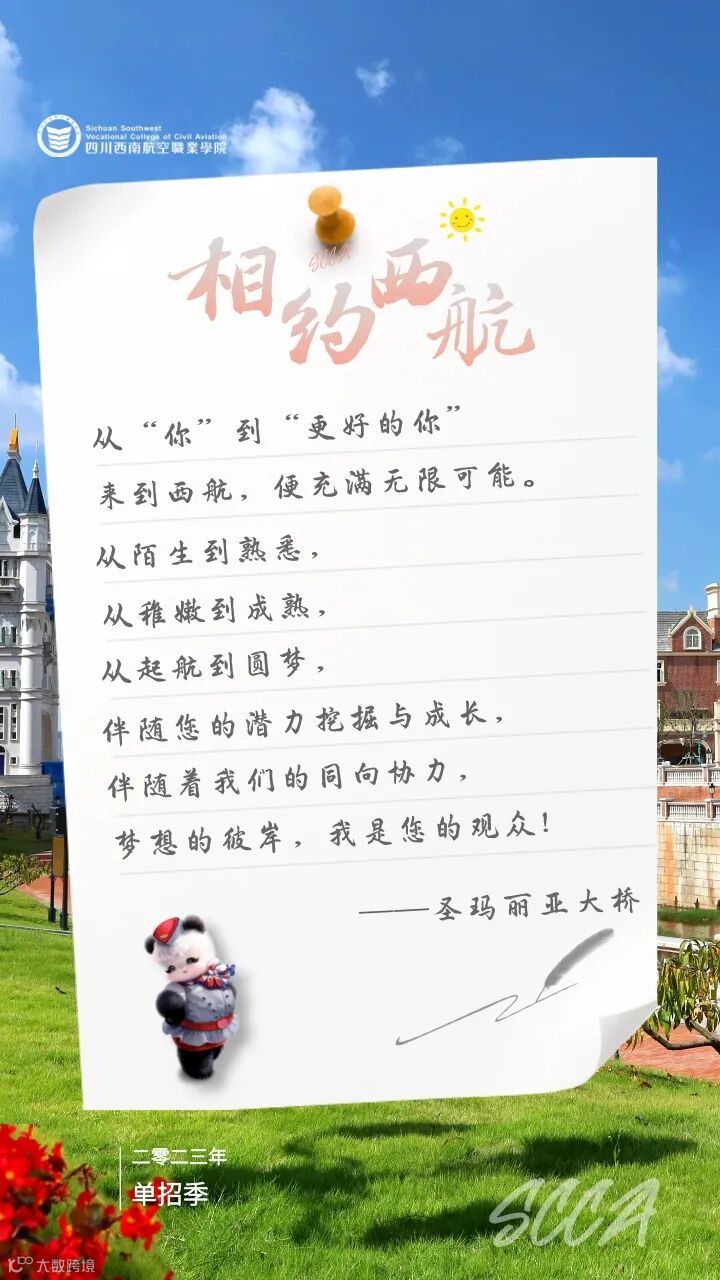 Sichuan Southwest
Vocational College of Civil Aviation
四川西南航空職業學院
SCCA
相约西航
从“你”到“更好的你”
来到西航，便充满无限可能。
从陌生到熟悉，
从稚嫩到成熟，
从起航到圆梦，
伴随您的潜力挖掘与成长，
伴随着我们的同向协力，
梦想的彼岸，我是您的观众!
——圣玛丽亚大桥
二零二三年
单招季
SCCA
大数跨境